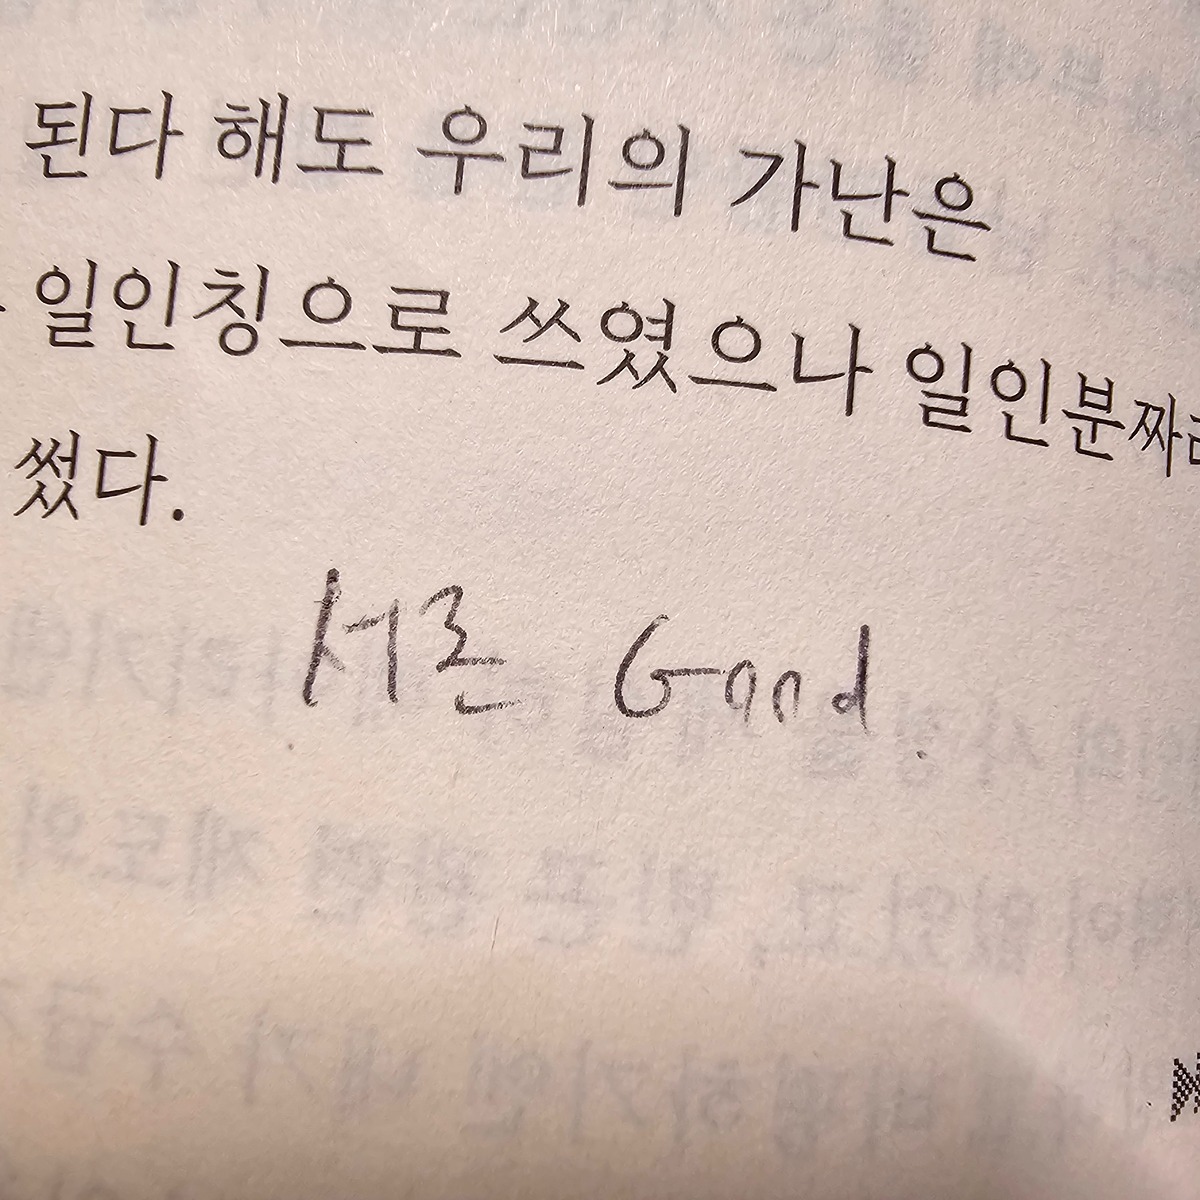 된다 해도 우리의 가난은
일인칭으로 쓰였으나 일인분짜리
썼다.
서론 Good